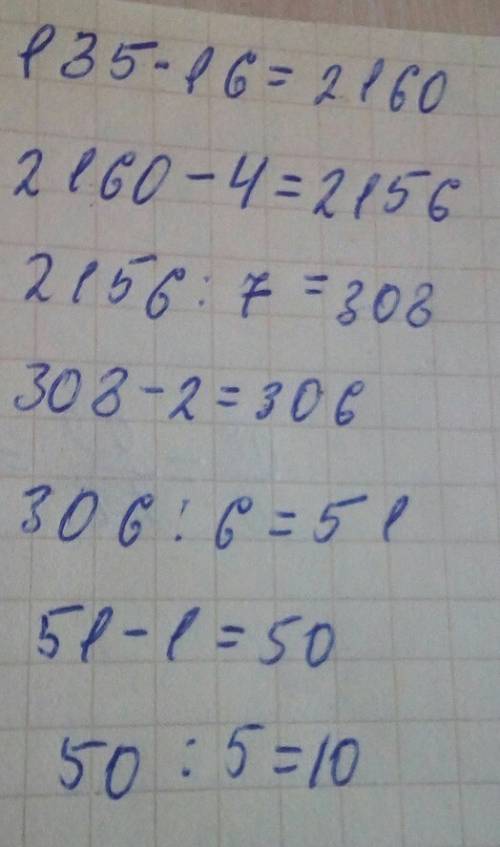 135·16=2160
2160-4=2156
2156:7=308
308-2=306
306:6=51
51-1=50
50:5=10